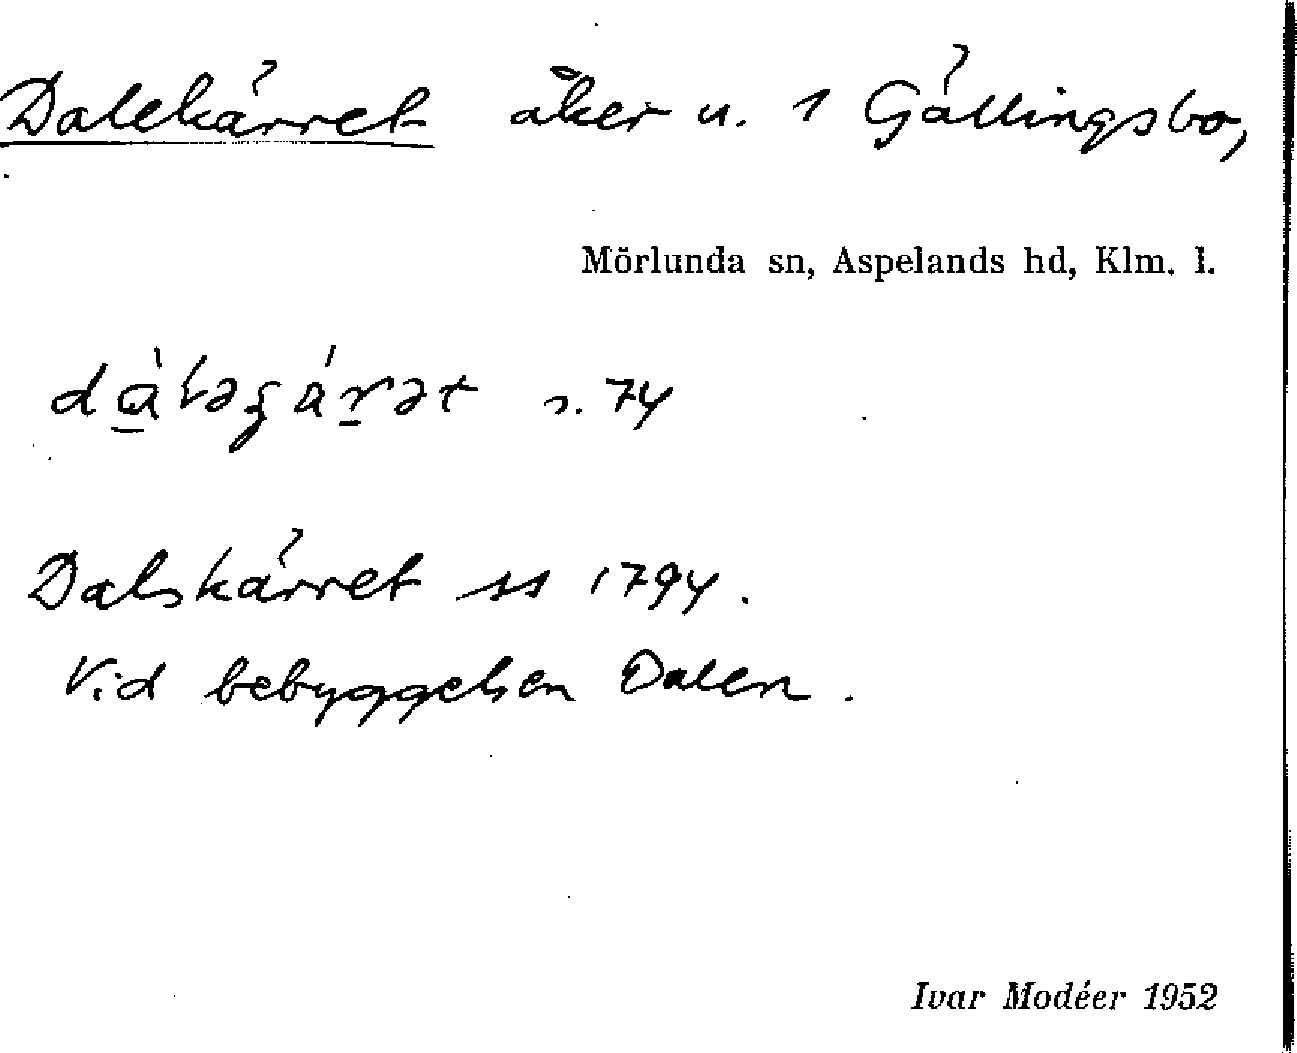 Dalekärret åker u. 1 Gällingsbo,
Mörlunda sn, Aspelands hd, Klm. l.
s. 74
Dalskärret ss 1794.
Vid bebyggelsen Dalen.
Ivar Modéer 1952